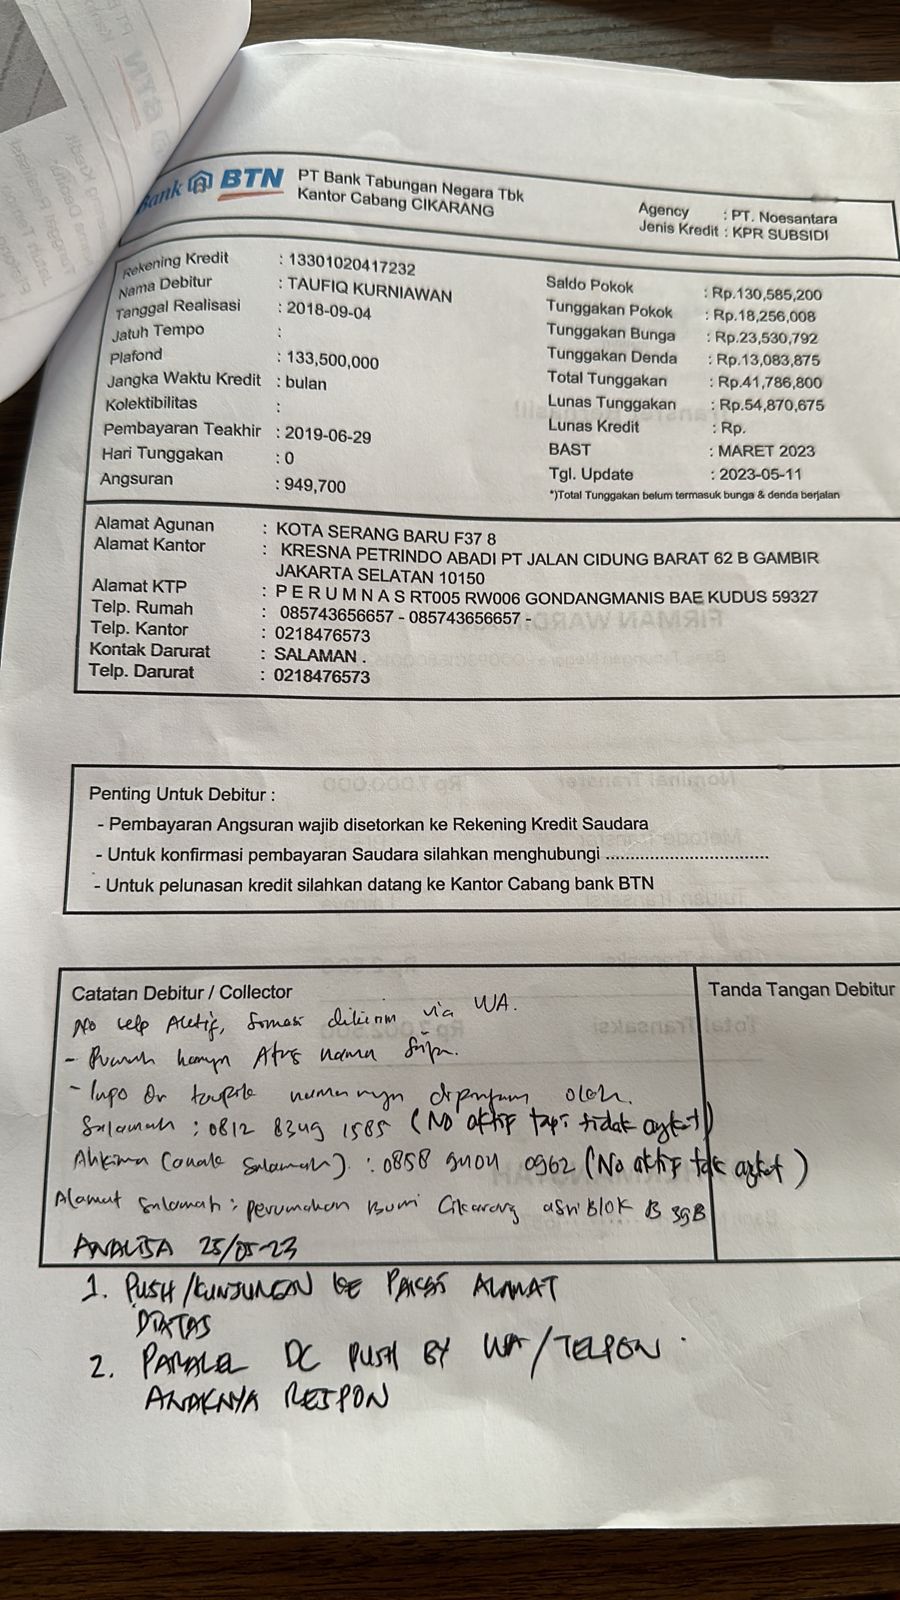 Bank BTN PT Bank Tabungan Negara Tbk
Kantor Cabang CIKARANG
Agency : PT. Noesantara
Jenis Kredit : KPR SUBSIDI
Rekening Kredit : 13301020417232
Nama Debitur : TAUFIQ KURNIAWAN
Tanggal Realisasi : 2018-09-04
Jatuh Tempo :
Plafond : 133,500,000
Jangka Waktu Kredit : bulan
Kolektibilitas :
Pembayaran Teakhir : 2019-06-29
Hari Tunggakan : 0
Angsuran : 949,700
Saldo Pokok : Rp.130,585,200
Tunggakan Pokok : Rp.18,256,008
Tunggakan Bunga : Rp.23,530,792
Tunggakan Denda : Rp.13,083,875
Total Tunggakan : Rp.41,786,800
Lunas Tunggakan : Rp.54,870,675
Lunas Kredit : Rp.
BAST : MARET 2023
Tgl. Update : 2023-05-11
*)Total Tunggakan belum termasuk bunga & denda berjalan
Alamat Agunan : KOTA SERANG BARU F37 8
Alamat Kantor : KRESNA PETRINDO ABADI PT JALAN CIDUNG BARAT 62 B GAMBIR
JAKARTA SELATAN 10150
Alamat KTP : P E R U M N A S RT005 RW006 GONDANGMANIS BAE KUDUS 59327
Telp. Rumah : 085743656657 - 085743656657 -
Telp. Kantor : 0218476573
Kontak Darurat : SALAMAN .
Telp. Darurat : 0218476573
Penting Untuk Debitur :
- Pembayaran Angsuran wajib disetorkan ke Rekening Kredit Saudara
- Untuk konfirmasi pembayaran Saudara silahkan menghubungi ................................
- Untuk pelunasan kredit silahkan datang ke Kantor Cabang bank BTN
Catatan Debitur / Collector
Tanda Tangan Debitur
No telp Aktif, Somasi dikirim via WA.
- Rumah hanya Atas nama
- Info namanya dipinjam oleh.
Salamah : 0812 8349 1585 (No aktif tapi tidak angkat)
(anak Salamah) : 0858 0962 (No aktif tdk angkat)
Alamat Salamah : perumahan Bumi Cikarang asri Blok B 39B
ANALISA 25/05-23
1. PUSH/KUNJUNGAN KE ALAMAT
DIATAS
2. PARALEL DC PUSH BY WA/TELPON
ANAKNYA RESPON